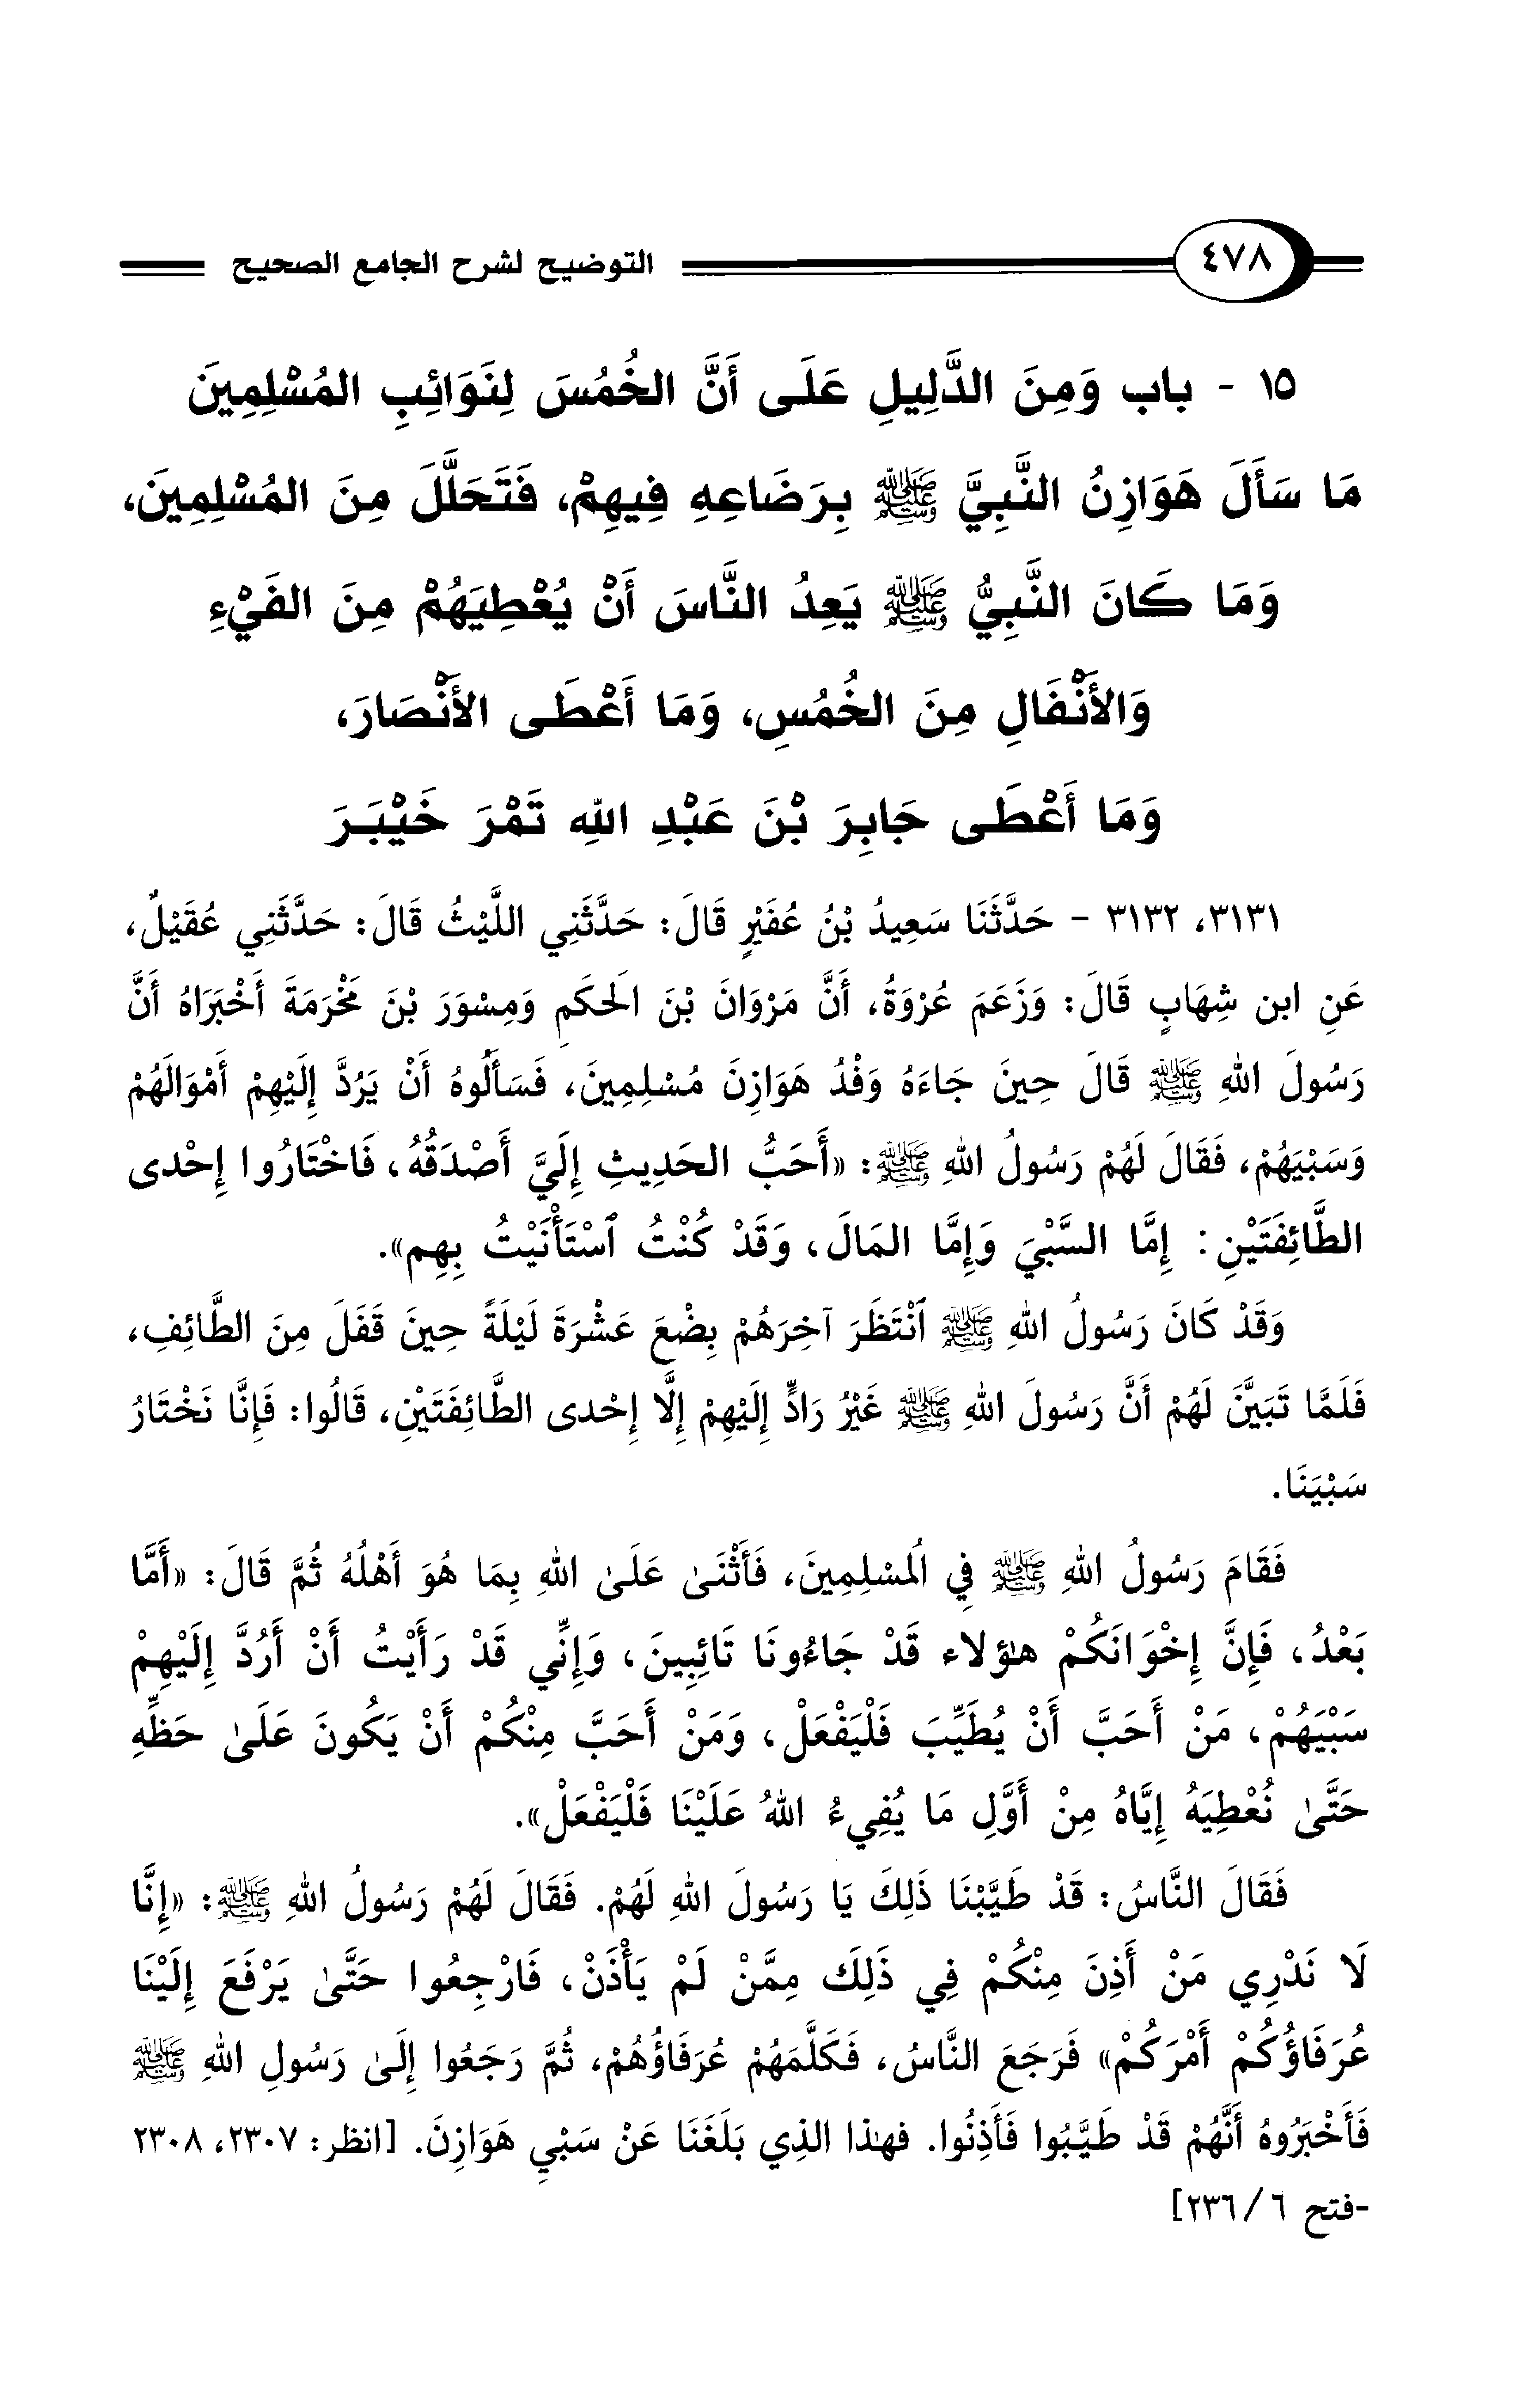 ٤٧٨ التوضيح لشرح الجامع الصحيح
١٥ - باب وَمِنَ الدَّلِيلِ عَلَى أَنَّ الخُمُسَ لِنَوَائِبِ المُسْلِمِينَ
مَا سَأَلَ هَوَازِنُ النَّبِيَّ ﷺ بِرَضَاعِهِ فِيهِمْ، فَتَحَلَّلَ مِنَ المُسْلِمِينَ،
وَمَا كَانَ النَّبِيُّ ﷺ يَعِدُ النَّاسَ أَنْ يُعْطِيَهُمْ مِنَ الفَيْءِ
وَالأَنْفَالِ مِنَ الخُمُسِ، وَمَا أَعْطَى الأَنْصَارَ،
وَمَا أَعْطَى جَابِرَ بْنَ عَبْدِ اللهِ تَمْرَ خَيْبَرَ
٣١٣١، ٣١٣٢ - حَدَّثَنَا سَعِيدُ بْنُ عُفَيْرٍ قَالَ: حَدَّثَنِي اللَّيْثُ قَالَ: حَدَّثَنِي عُقَيْلٌ،
عَنِ ابن شِهَابٍ قَالَ: وَزَعَمَ عُرْوَةُ، أَنَّ مَرْوَانَ بْنَ الَحكَمِ وَمِسْوَرَ بْنَ مَخْرَمَةَ أَخْبَرَاهُ أَنَّ
رَسُولَ اللهِ ﷺ قَالَ حِينَ جَاءَهُ وَفْدُ هَوَازِنَ مُسْلِمِينَ، فَسَأَلُوهُ أَنْ يَرُدَّ إِلَيْهِمْ أَمْوَالَهُمْ
وَسَبْيَهُمْ، فَقَالَ لَهُمْ رَسُولُ اللهِ ﷺ: «أَحَبُّ الحَدِيثِ إِلَيَّ أَصْدَقُهُ، فَاخْتَارُوا إِحْدى
الطَّائِفَتَيْنِ: إِمَّا السَّبْيَ وَإِمَّا المَالَ، وَقَدْ كُنْتُ ٱسْتَأْنَيْتُ بِهِم».
وَقَدْ كَانَ رَسُولُ اللهِ ﷺ ٱنْتَظَرَ آخِرَهُمْ بِضْعَ عَشْرَةَ لَيْلَةً حِينَ قَفَلَ مِنَ الطَّائِفِ،
فَلَمَّا تَبَيَّنَ لَهُمْ أَنَّ رَسُولَ اللهِ ﷺ غَيْرُ رَادٍّ إِلَيْهِمْ إِلَّا إِحْدى الطَّائِفَتَيْنِ، قَالُوا: فَإِنَّا نَخْتَارُ
سَبْيَنَا.
فَقَامَ رَسُولُ اللهِ ﷺ فِي اُلمسْلِمِينَ، فَأَثْنَىٰ عَلَىٰ اللهِ بِمَا هُوَ أَهْلُهُ ثُمَّ قَالَ: «أَمَّا
بَعْدُ، فَإِنَّ إِخْوَانَكُمْ هٰؤلاء قَدْ جَاءُونَا تَائِبِينَ، وَإِنِّي قَدْ رَأَيْتُ أَنْ أَرُدَّ إِلَيْهِمْ
سَبْيَهُمْ، مَنْ أَحَبَّ أَنْ يُطَيِّبَ فَلْيَفْعَلْ، وَمَنْ أَحَبَّ مِنْكُمْ أَنْ يَكُونَ عَلَىٰ حَظِّهِ
حَتَّىٰ نُعْطِيَهُ إِيَّاهُ مِنْ أَوَّلِ مَا يُفِيءُ اللهُ عَلَيْنَا فَلْيَفْعَلْ».
فَقَالَ النَّاسُ: قَدْ طَيَّبْنَا ذَلِكَ يَا رَسُولَ اللهِ لَهُمْ. فَقَالَ لَهُمْ رَسُولُ اللهِ ﷺ: «إِنَّا
لَا نَدْرِي مَنْ أَذِنَ مِنْكُمْ فِي ذَلِكَ مِمَّنْ لَمْ يَأْذَنْ، فَارْجِعُوا حَتَّىٰ يَرْفَعَ إِلَيْنَا
عُرَفَاؤُكُمْ أَمْرَكُمْ» فَرَجَعَ النَّاسُ، فَكَلَّمَهُمْ عُرَفَاؤُهُمْ، ثُمَّ رَجَعُوا إِلَىٰ رَسُولِ اللهِ ﷺ
فَأَخْبَرُوهُ أَنَّهُمْ قَدْ طَيَّبُوا فَأَذِنُوا. فهٰذا الذِي بَلَغَنَا عَنْ سَبْيِ هَوَازِنَ. [انظر: ٢٣٠٧، ٢٣٠٨
-فتح ٦/ ٢٣٦]